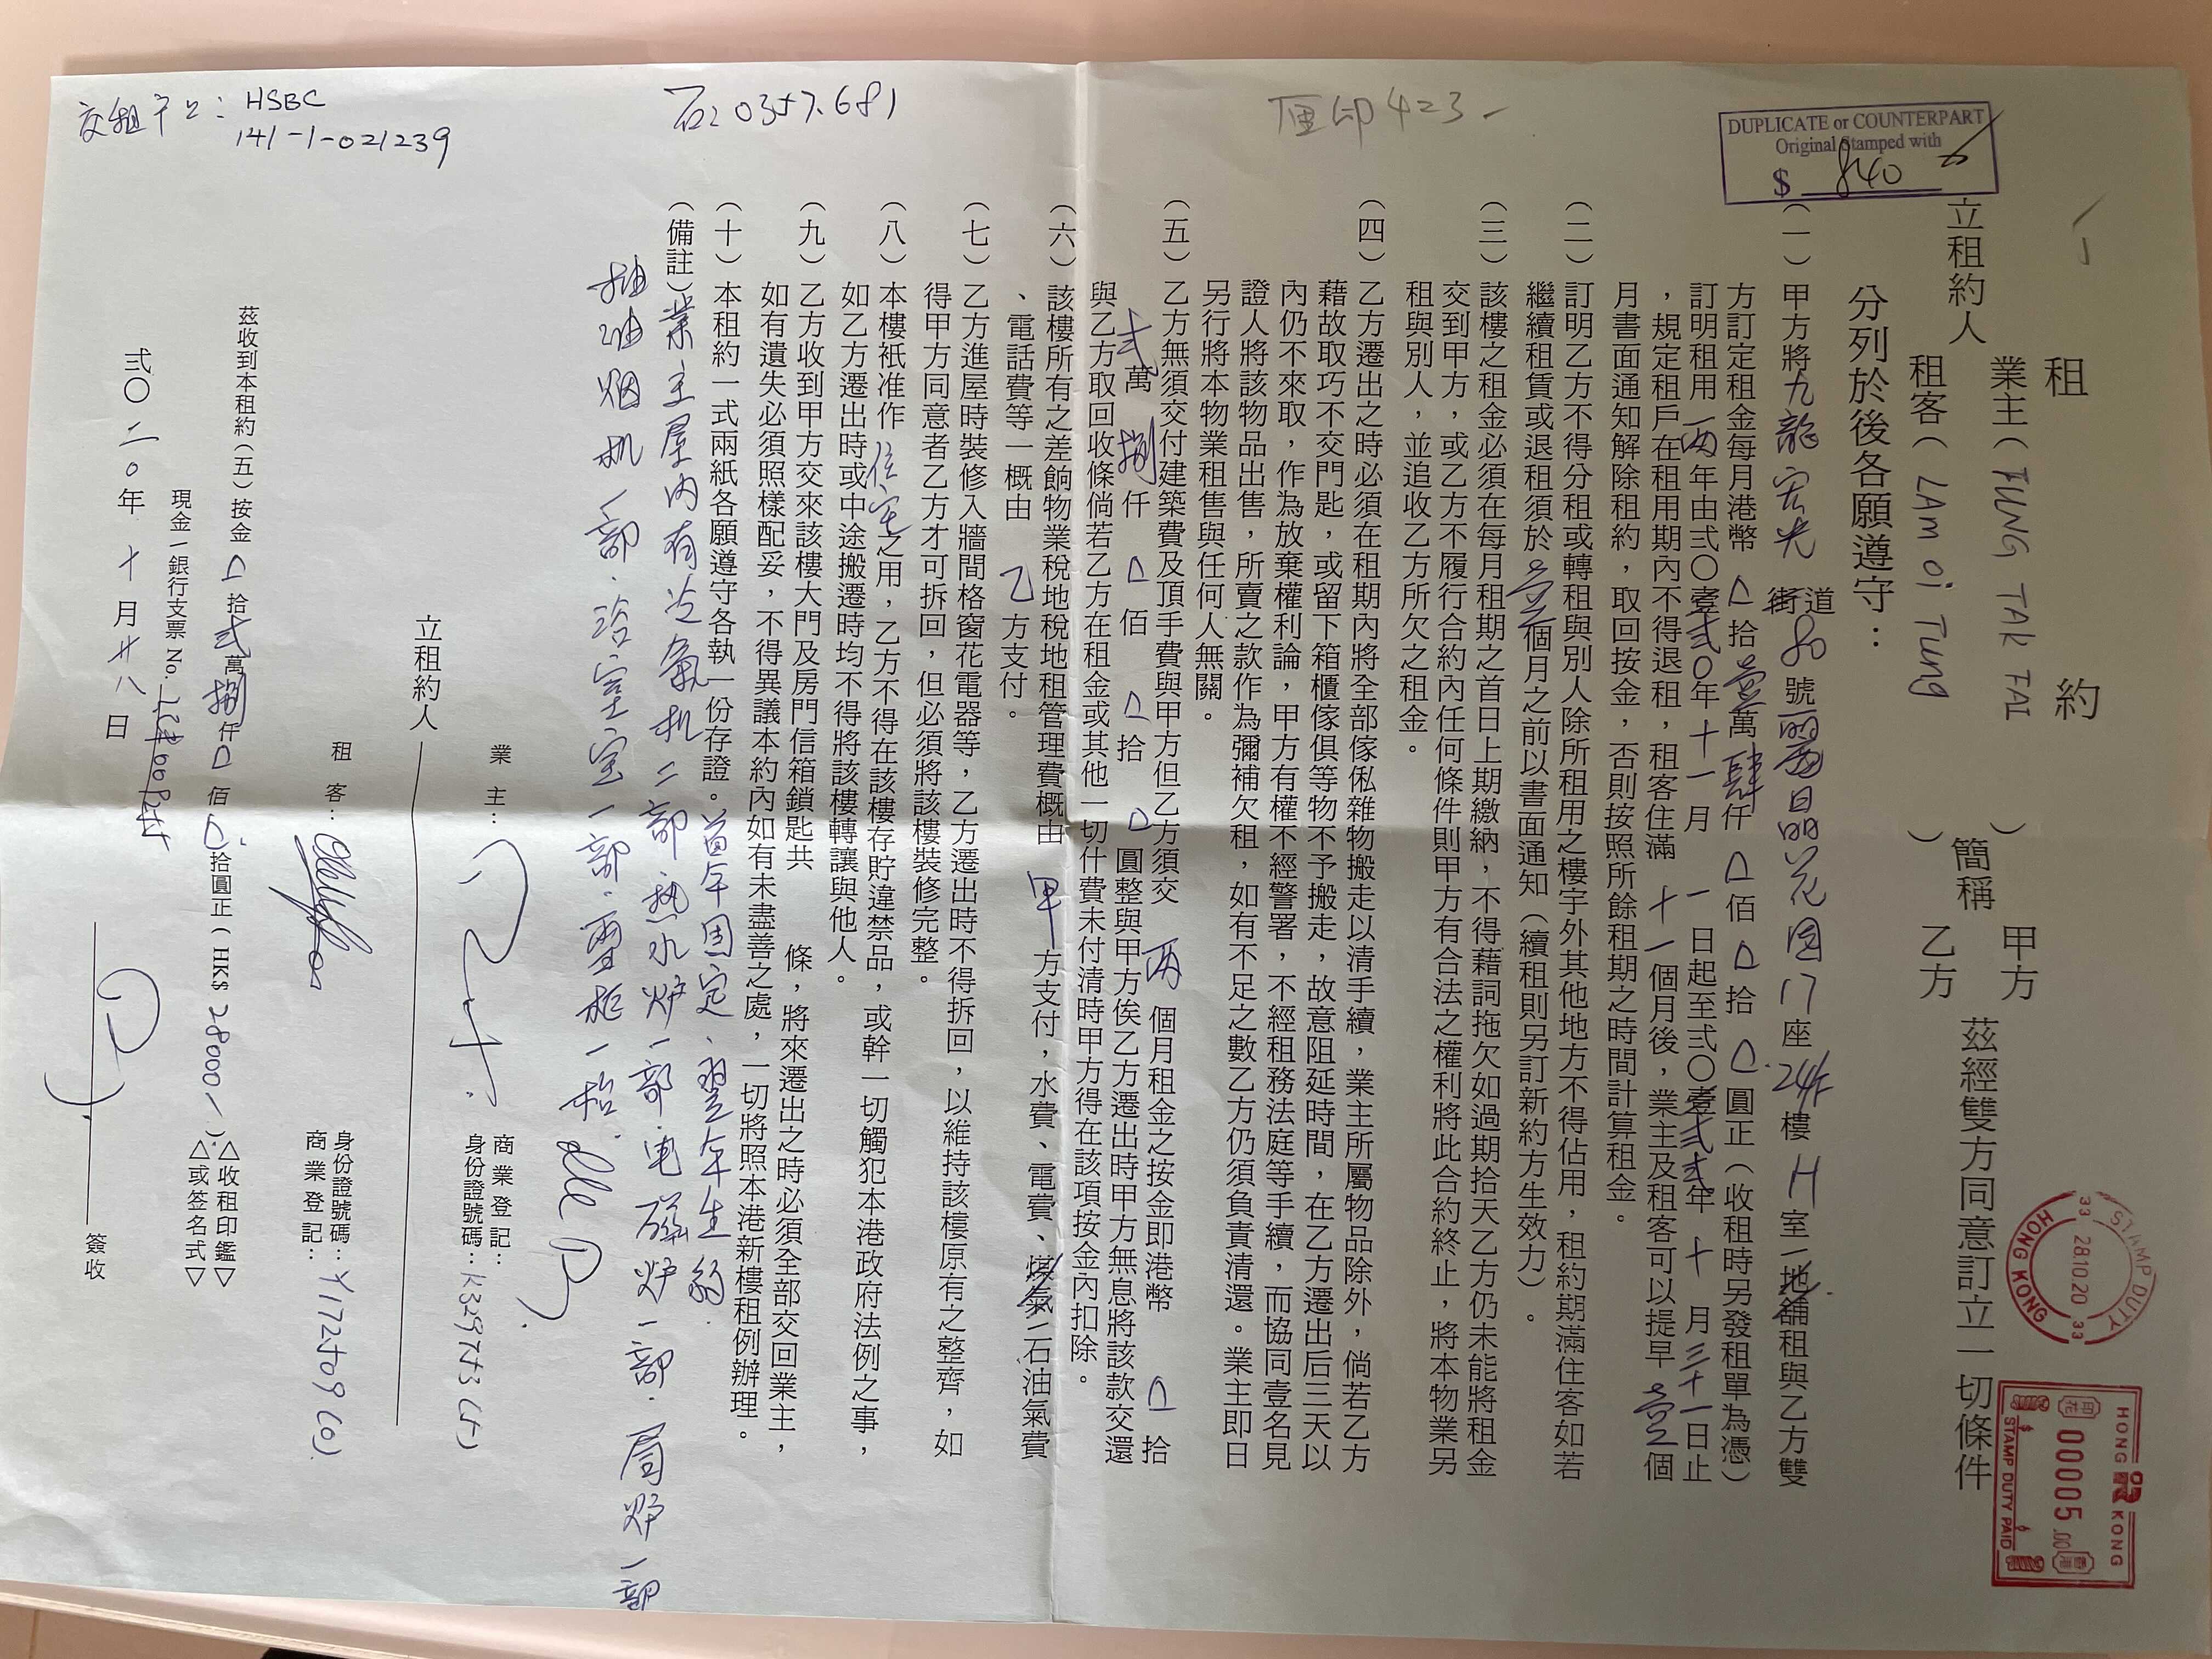 交租戶口：HSBC
141-1-021239
厘印 423-
DUPLICATE or COUNTERPART
Original Stamped with
$ 840
租約
立租約人
業主（FUNG TAK TAI）
租客（LAM OI TUNG）
簡稱
甲方
乙方
茲經雙方同意訂立一切條件
分列於後各願遵守：
（一）甲方將九龍宏光街道80號麗晶花園17座24/F樓H室/地舖租與乙方雙
方訂定租金每月港幣△拾壹萬肆仟△佰△拾△圓正（收租時另發租單為憑）
訂明租用兩年由弍〇壹弍〇年十一月一日起至弍〇壹弍弍年十月三十一日止
，規定租戶在租用期內不得退租，租客住滿十一個月後，業主及租客可以提早壹個
月書面通知解除租約，取回按金，否則按照所餘租期之時間計算租金。
（二）訂明乙方不得分租或轉租與別人除所租用之樓宇外其他地方不得佔用，租約期滿住客如若
繼續租賃或退租須於壹個月之前以書面通知（續租則另訂新約方生效力）。
（三）該樓之租金必須在每月租期之首日上期繳納，不得藉詞拖欠如過期拾天乙方仍未能將租金
交到甲方，或乙方不履行合約內任何條件則甲方有合法之權利將此合約終止，將本物業另
租與別人，並追收乙方所欠之租金。
（四）乙方遷出之時必須在租期內將全部傢俬雜物搬走以清手續，業主所屬物品除外，倘若乙方
藉故取巧不交門匙，或留下箱櫃傢俱等物不予搬走，故意阻延時間，在乙方遷出后三天以
內仍不來取，作為放棄權利論，甲方有權不經警署，不經租務法庭等手續，而協同壹名見
證人將該物品出售，所賣之款作為彌補欠租，如有不足之數乙方仍須負責清還。業主即日
另行將本物業租售與任何人無關。
（五）乙方無須交付建築費及頂手費與甲方但乙方須交兩個月租金之按金即港幣△拾
弍萬捌仟△佰△拾△圓整與甲方俟乙方遷出時甲方無息將該款交還
與乙方取回收條倘若乙方在租金或其他一切什費未付清時甲方得在該項按金內扣除。
（六）該樓所有之差餉物業稅地稅地租管理費概由甲方支付，水費、電費、煤氣/石油氣費
、電話費等一概由乙方支付。
（七）乙方進屋時裝修入牆間格窗花電器等，乙方遷出時不得拆回，以維持該樓原有之整齊，如
得甲方同意者乙方才可拆回，但必須將該樓裝修完整。
（八）本樓祇准作住宅之用，乙方不得在該樓存貯違禁品，或幹一切觸犯本港政府法例之事，
如乙方遷出時或中途搬遷時均不得將該樓轉讓與他人。
（九）乙方收到甲方交來該樓大門及房門信箱鎖匙共 條，將來遷出之時必須全部交回業主，
如有遺失必須照樣配妥，不得異議本約內如有未盡善之處，一切將照本港新樓租例辦理。
（十）本租約一式兩紙各願遵守各執一份存證。首年固定，翌年生約．
（備註）業主屋內有冷氣机二部．熱水炉一部．电磁炉一部．焗炉一部
抽油烟机一部．浴室宝一部．雪柜一枱．
立租約人
業主：
商業登記：
身份證號碼：
租客：
身份證號碼：
商業登記：
茲收到本租約（五）按金△拾弍萬捌仟△佰△拾圓正（HK$ 28000/）
現金/銀行支票 No.
△收租印鑑▽
△或签名式▽
弍〇二〇年十月廿八日
簽收
STAMP DUTY
33 28.10.20 33
HONG KONG
HONG KONG
印花
00005.00
香港
STAMP DUTY PAID